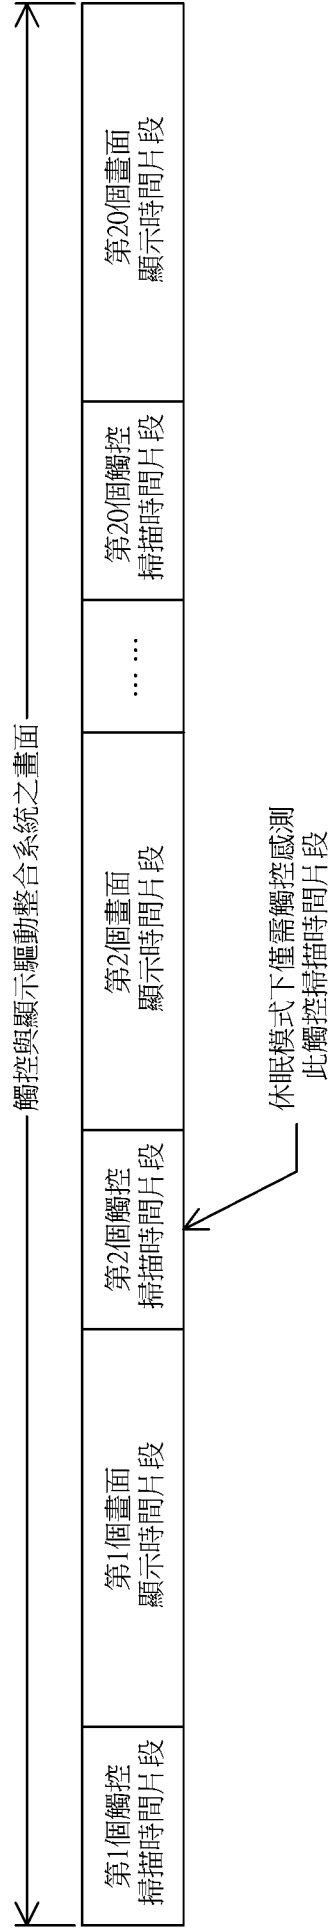 觸控與顯示驅動整合系統之畫面
第1個觸控
掃描時間片段
第1個畫面
顯示時間片段
第2個觸控
掃描時間片段
第2個畫面
顯示時間片段
... ...
第20個觸控
掃描時間片段
第20個畫面
顯示時間片段
休眠模式下僅需觸控感測
此觸控掃描時間片段